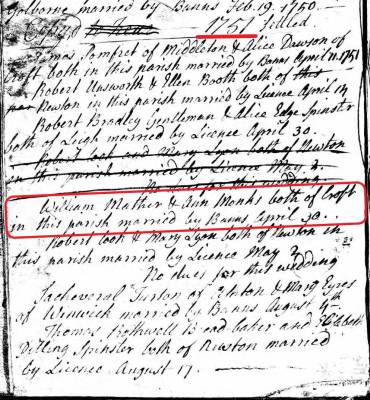 Golborne married by Banns Feb. 19. 1750.
1751
Thomas Pomfret of Middleton & Alice Dawson of
Croft both in this parish married by Banns April 11. 1751
Robert Unsworth & Ellen Booth both of this
par Newton in this parish married by Licence April 14
Robert Bradley Gentleman & Alice Edge Spinster
both of Leigh married by Licence April 30.
Robert Cook and Mary Lyon both of Newton
in this parish married by Licence May 2.
No dues for this wedding.
William Mather & Ann Monks both of Croft
in this parish married by Banns April 30.
Robert Cook & Mary Lyon both of Newton in
this parish married by Licence May 2
No dues for this wedding
Sacheveral Turton of & Mary Eyres
of Winwick married by Banns August
Thomas Rothwell Bread baker and Elizabeth
Pilling Spinster both of Newton married
by Licence August 17.